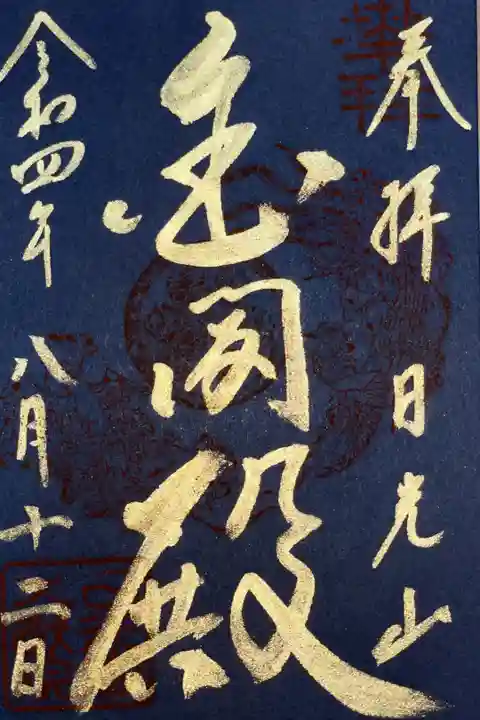 奉拝 日光山
金閣殿
令和四年 八月十二日